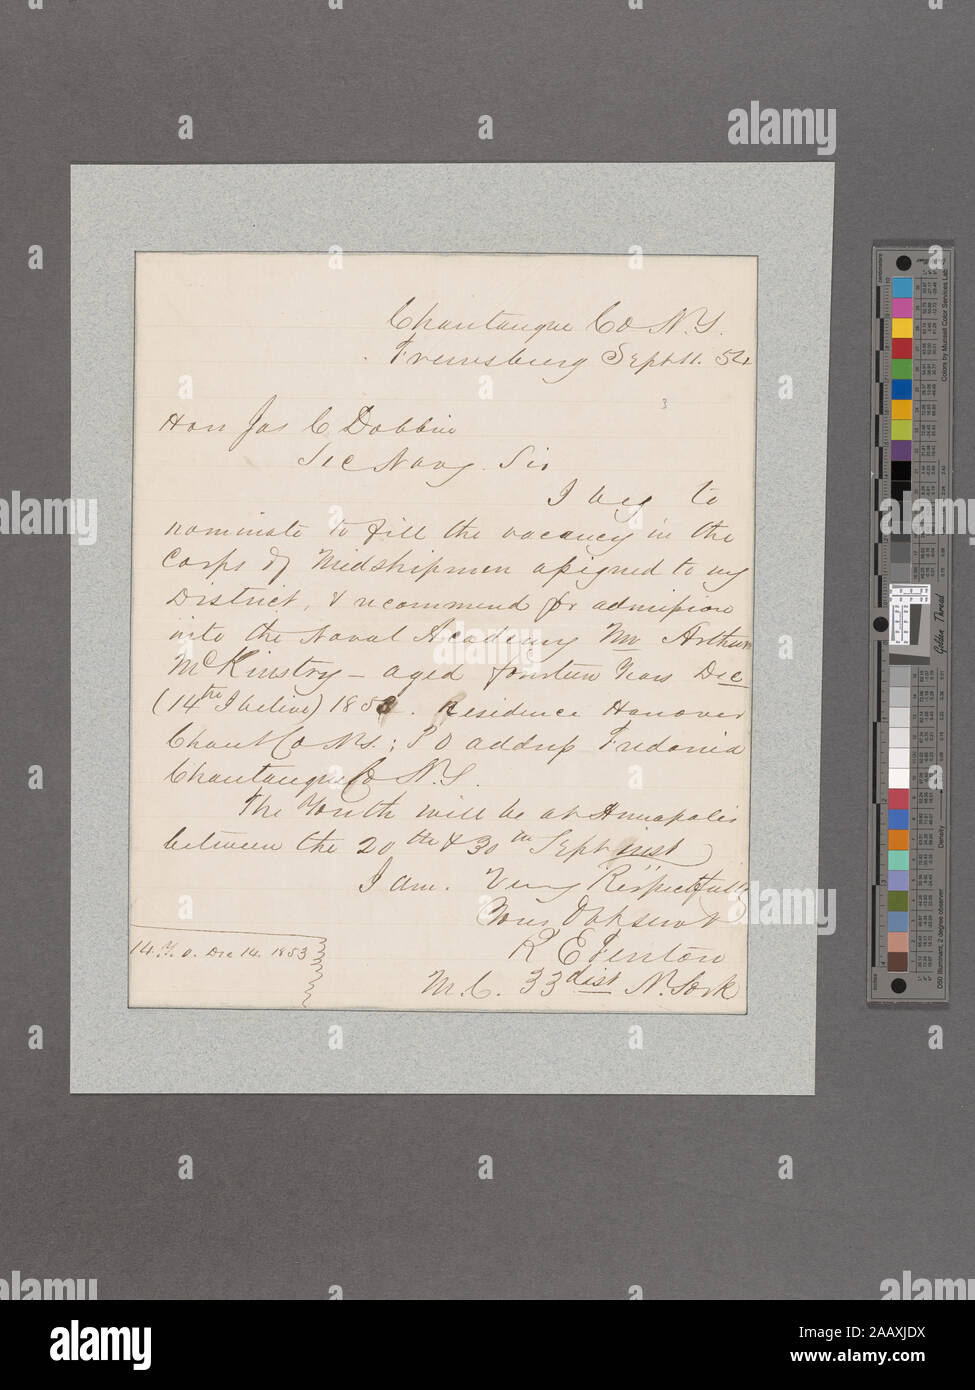 Chautauque Co N.Y.
Frewsburg Sept 11. 54
3
Hon Jas C Dobbin
Sec Navy. Sir
I beg to
nominate to fill the vacancy in the
Corps of Midshipmen assigned to my
District, & recommend for admission
into the Naval Academy Mr Arthur
McKinstry – aged fourteen Years Dec
(14th I belive) 1853. Residence Hanover
Chaut Co N.Y.; P O address Fredonia
Chautauque Co N.Y.
The Youth will be at Annapolis
between the 20th & 30th Sept inst
I am. Very Respectfully
Your Obt Servt
R E Fenton
M.C. 33 dist N. York
14. Y. o. Dec 14. 1853
alamy
a alamy stock photo
Golden Thread
Colors by Munsell Color Services Lab
D50 Illuminant, 2 degree observer
Density
Image ID: 2AAXJDX
www.alamy.com